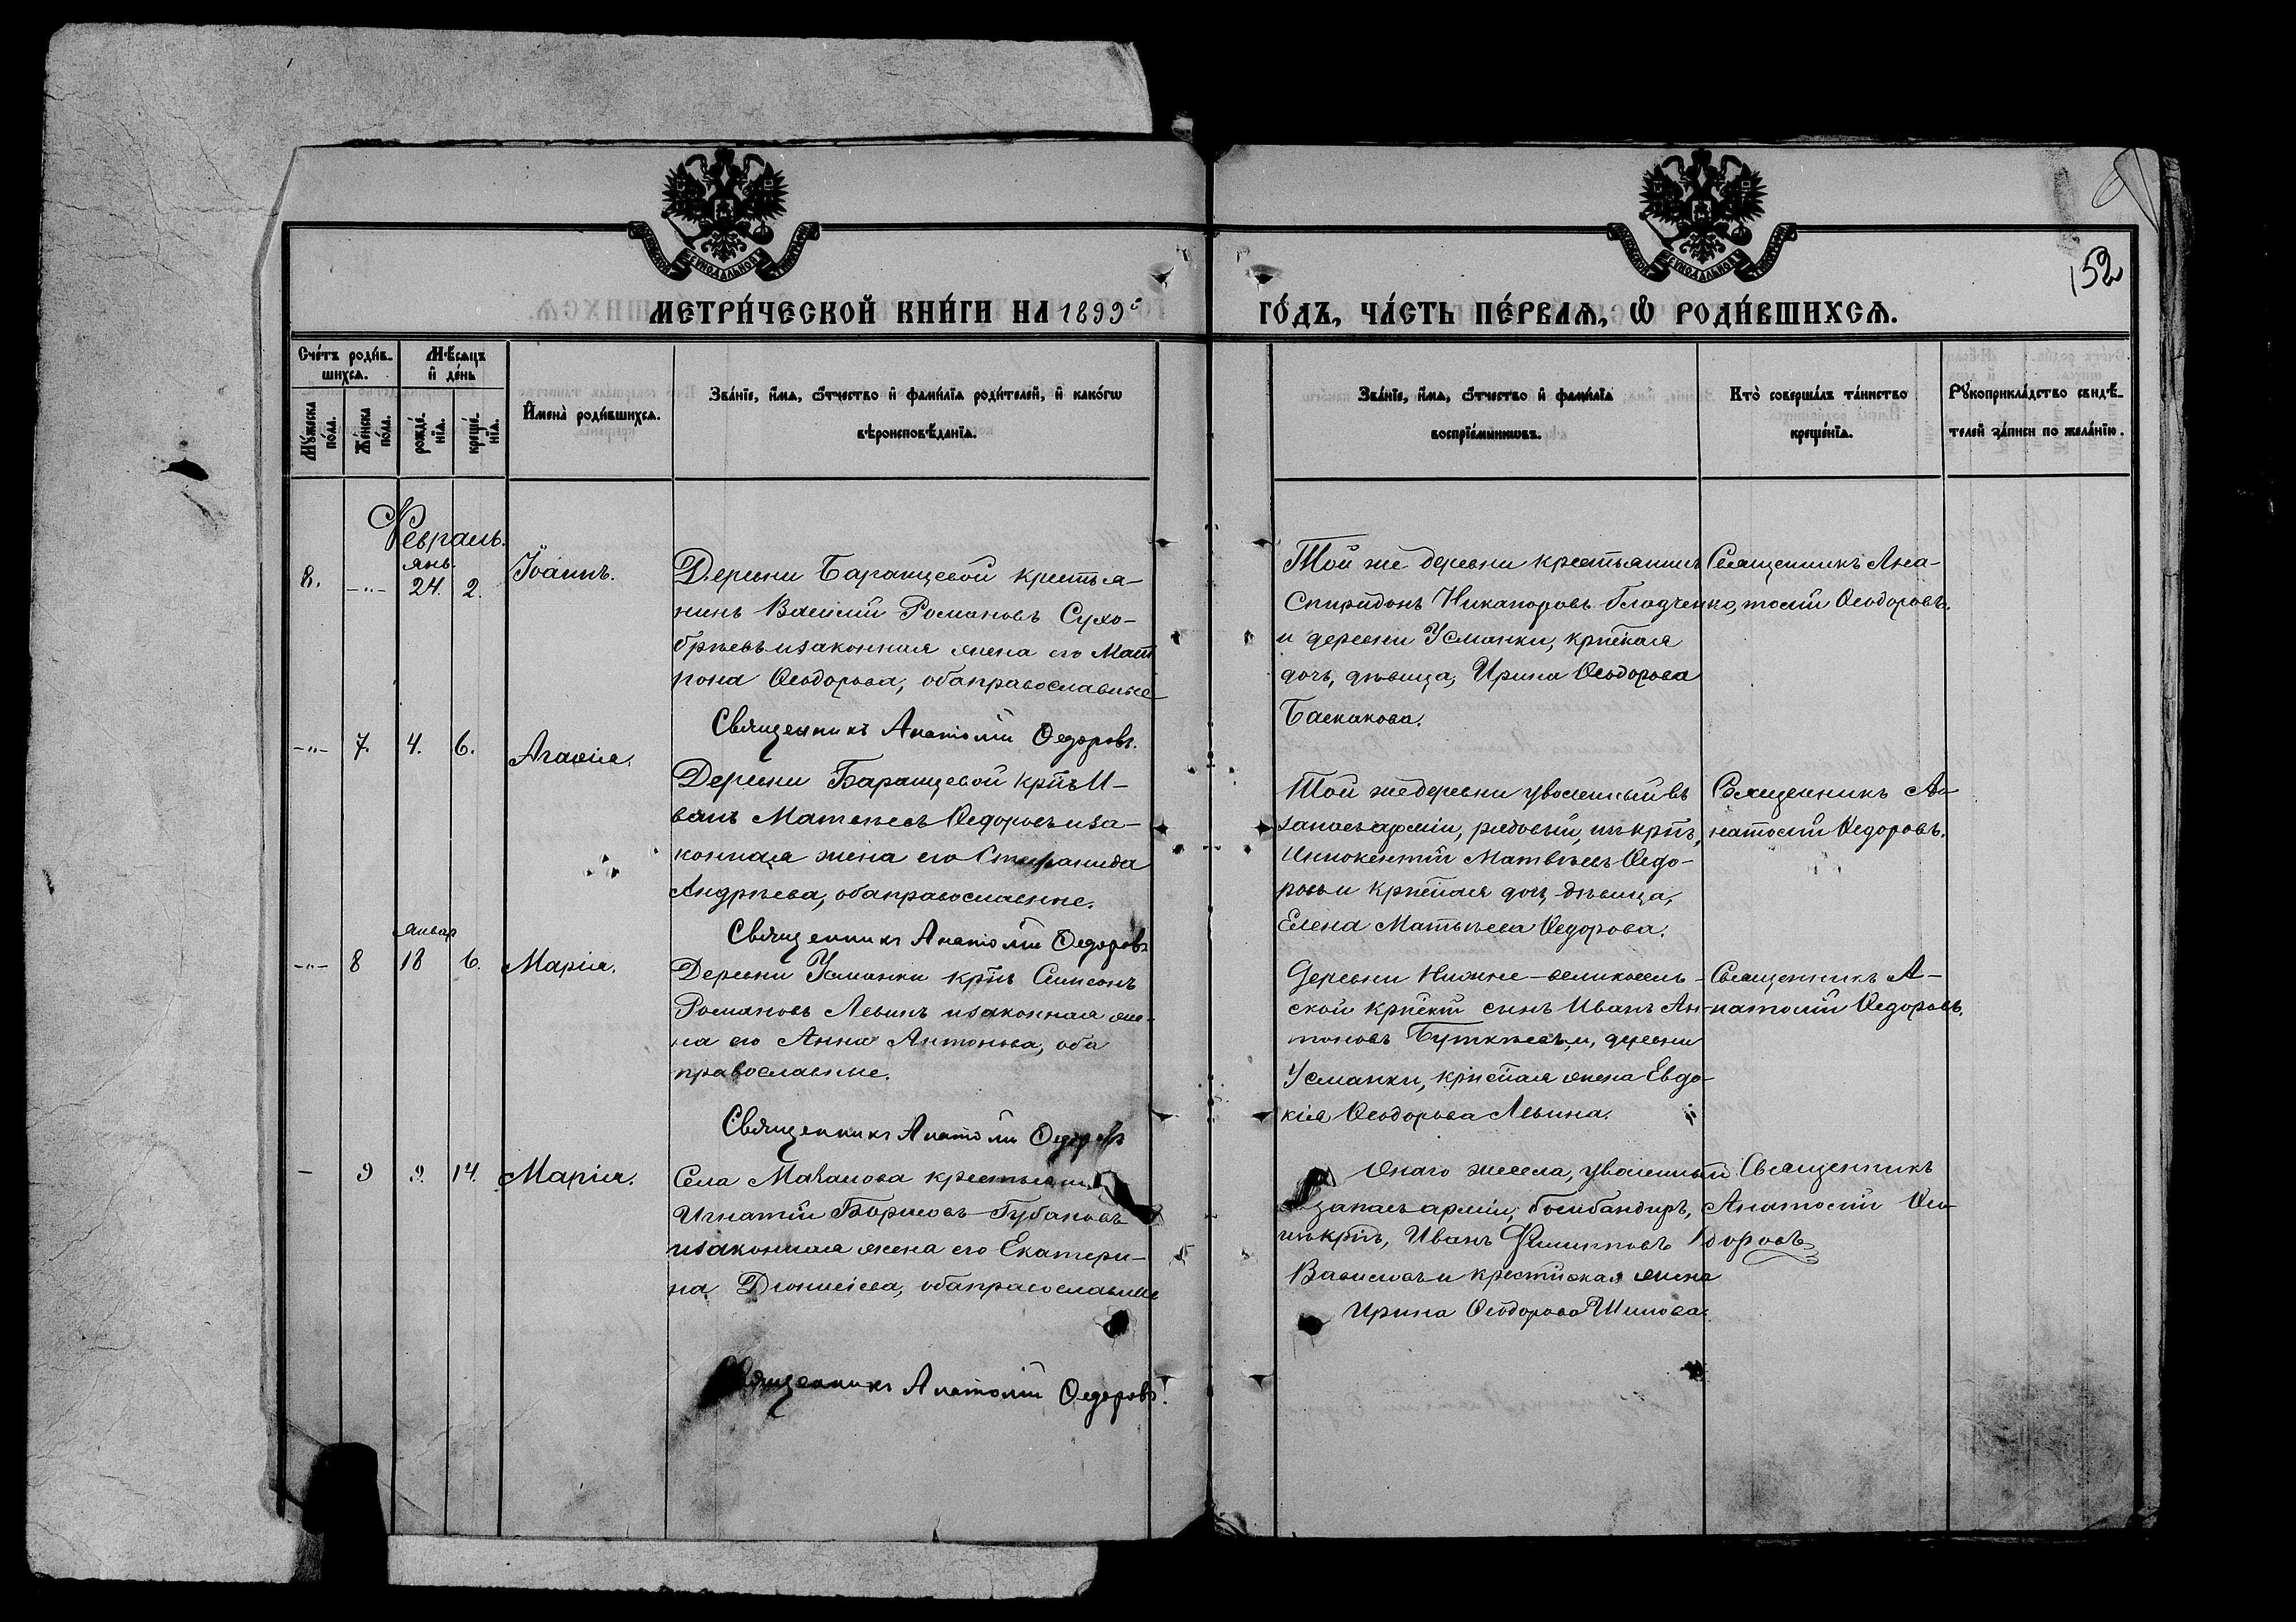 152
МЕТРИ́ЧЕСКОЙ КНИ́ГИ НА 1899й ГО́ДЪ, ЧА́СТЬ ПЕ́РВАѦ, Ѡ҆ РОДИ́ВШИХСѦ.
Сче́тъ роди́в-
шихсѧ.
Мѣ́сѧцъ
и҆ де́нь
Мꙋ́жеска
по́ла.
Же́нска
по́ла.
рожде́-
нїѧ.
креще́-
нїѧ.
И҆мена̀ роди́вшихсѧ.
Зва́нїе, и҆́мѧ, ѻ҆́тчество и҆ фами́лїѧ роди́телей, и҆ како́гѡ
вѣроисповѣ́данїѧ.
Зва́нїе, и҆́мѧ, ѻ҆́тчество и҆ фами́лїѧ
воспрїе́мникѡвъ.
Кто̀ соверша́лъ та́инство
креще́нїѧ.
Рꙋкоприкла́дство свидѣ́-
телей за́писи по жела́нїю.
Февраль.
янв.
8. -"- 24. 2. Іоаннъ.
Деревни Баранцевой крестья-
нинъ Василій Романовъ Сухо-
врѣевъ и законная жена его Мат
рона Ѳеодорова, оба православные
Священникъ Анатолій Ѳедоровъ.
Той же деревни крестьянинъ
Спиридонъ Никаноровъ Гладченко,
и деревни Усманки, крѣская
дочь, дѣвица, Ирина Ѳеодорова
Баскакова.
Священникъ Ана-
толій Ѳеодоровъ.
-"- 7. 4. 6. Агаѳія.
Деревни Баранцевой крнъ И-
ванъ Матвѣевъ Ѳедоровъ и за-
конная жена его Стефанида
Андрѣева, оба православные.
Священникъ Анатолій Ѳедоровъ
Той же деревни уволенный въ
запасъ арміи, рядовый, изъ крнъ,
Иннокентій Матвѣевъ Ѳедо-
ровъ и крѣская дочь, дѣвица,
Елена Матвѣева Ѳедорова.
Священникъ А-
натолій Ѳедоровъ.
январ
-"- 8 18 6. Марія.
Деревни Усманки крнъ Симеонъ
Романовъ Левинъ и законная же-
на его Анна Антонова, оба
православные.
Священникъ Анатолій Ѳедоровъ
Деревни Нижне-великосель-
ской крскій сынъ Иванъ Ан-
тоновъ Буткѣевъ, и, деревни
Усманки, крѣская жена Евдо-
кія Ѳеодорова Левина.
Священникъ А-
натолій Ѳедоровъ.
- 9 9. 14. Марія.
Села крестьянинъ
Игнатій Борисовъ Губановъ
и законная жена его Екатери-
на Діонисіева, оба православные
Священникъ Анатолій Ѳедоровъ.
Онаго же села, уволенный
запасъ арміи, бомбандиръ,
изъ крнъ, Иванъ Филипповъ
и крестьская жена
Ирина Ѳеодорова Шилова.
Священникъ
Анатолій Ѳео-
доровъ